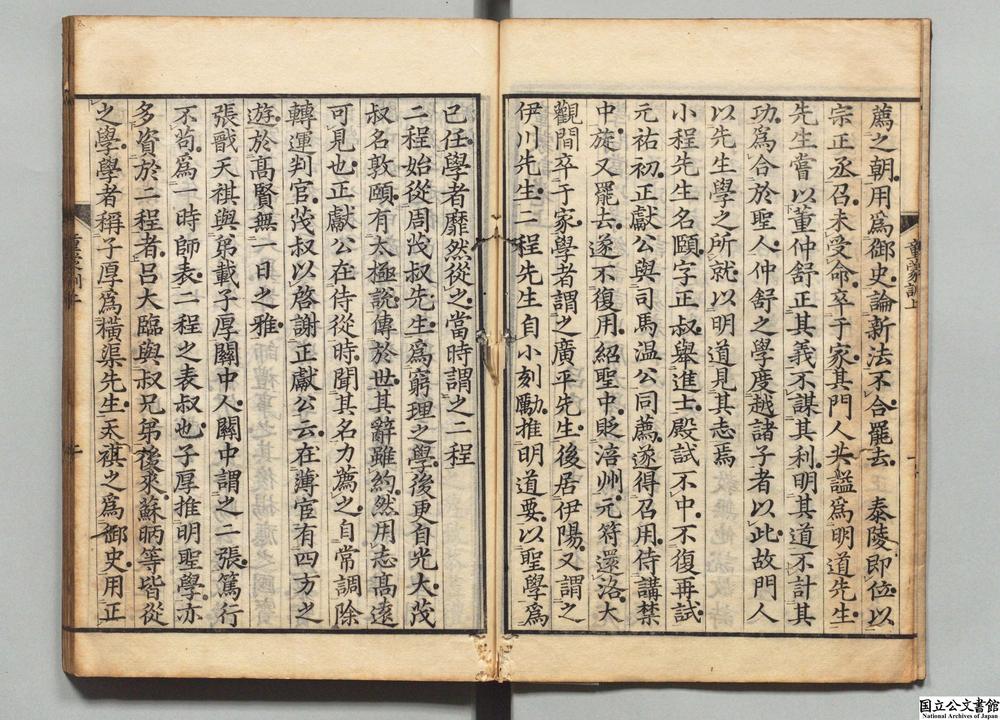 薦之朝用爲御史論新法不合罷去　泰陵即位以
宗正丞召未受命卒于家其門人共謚爲明道先生
先生嘗以董仲舒正其義不謀其利明其道不計其
功爲合於聖人仲舒之學度越諸子者以此故門人
以先生學之所就以明道見其志焉
小程先生名頤字正叔舉進士殿試不中不復再試
元祐初正獻公與司馬温公同薦遂得召用侍講禁
中旋又罷去遂不復用紹聖中貶涪州元符還洛大
觀間卒于家學者謂之廣平先生後居伊陽又謂之
伊川先生二程先生自小刻勵推明道要以聖學爲
已任學者靡然從之當時謂之二程
二程始從周茂叔先生爲窮理之學後更自光大茂
叔名敦頤有太極說傳於世其辭雖約然用志髙遠
可見也正獻公在侍從時聞其名力薦之自常調除
轉運判官茂叔以啓謝正獻公云在薄宦有四方之
遊於髙賢無一日之雅
張戩天祺與弟載子厚關中人關中謂之二張篤行
不苟爲一時師表二程之表叔也子厚推明聖學亦
多資於二程者吕大臨與叔兄弟後來蘇昞等皆從
之學學者稱子厚爲橫渠先生天祺之爲御史用正
國立公文書館
National Archives of Japan